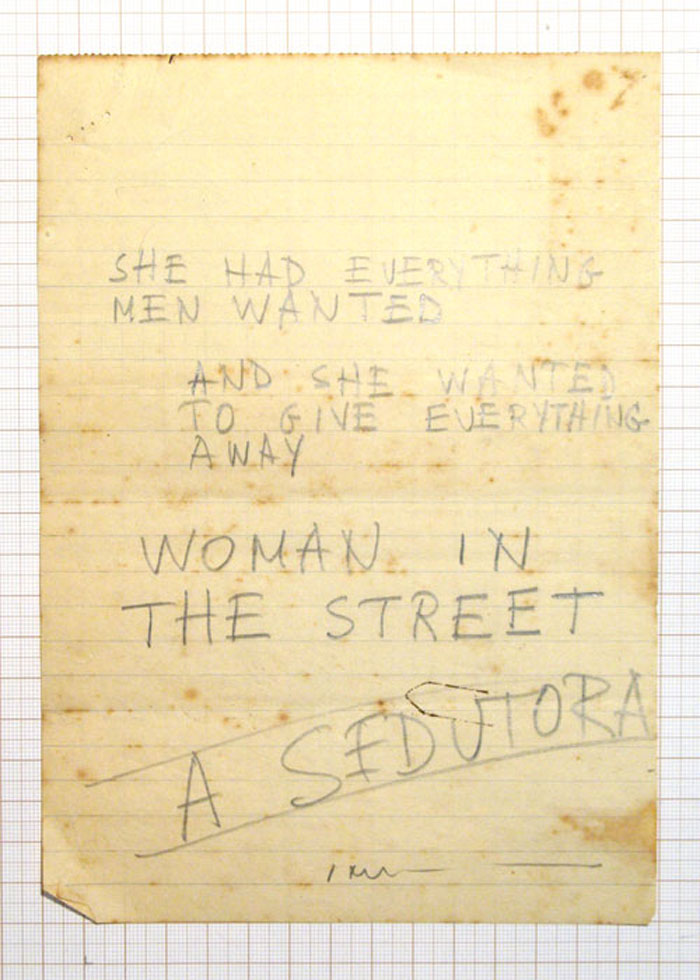 SHE HAD EVERYTHING
MEN WANTED
AND SHE WANTED
TO GIVE EVERYTHING
AWAY
WOMAN IN
THE STREET
A SEDUTORA